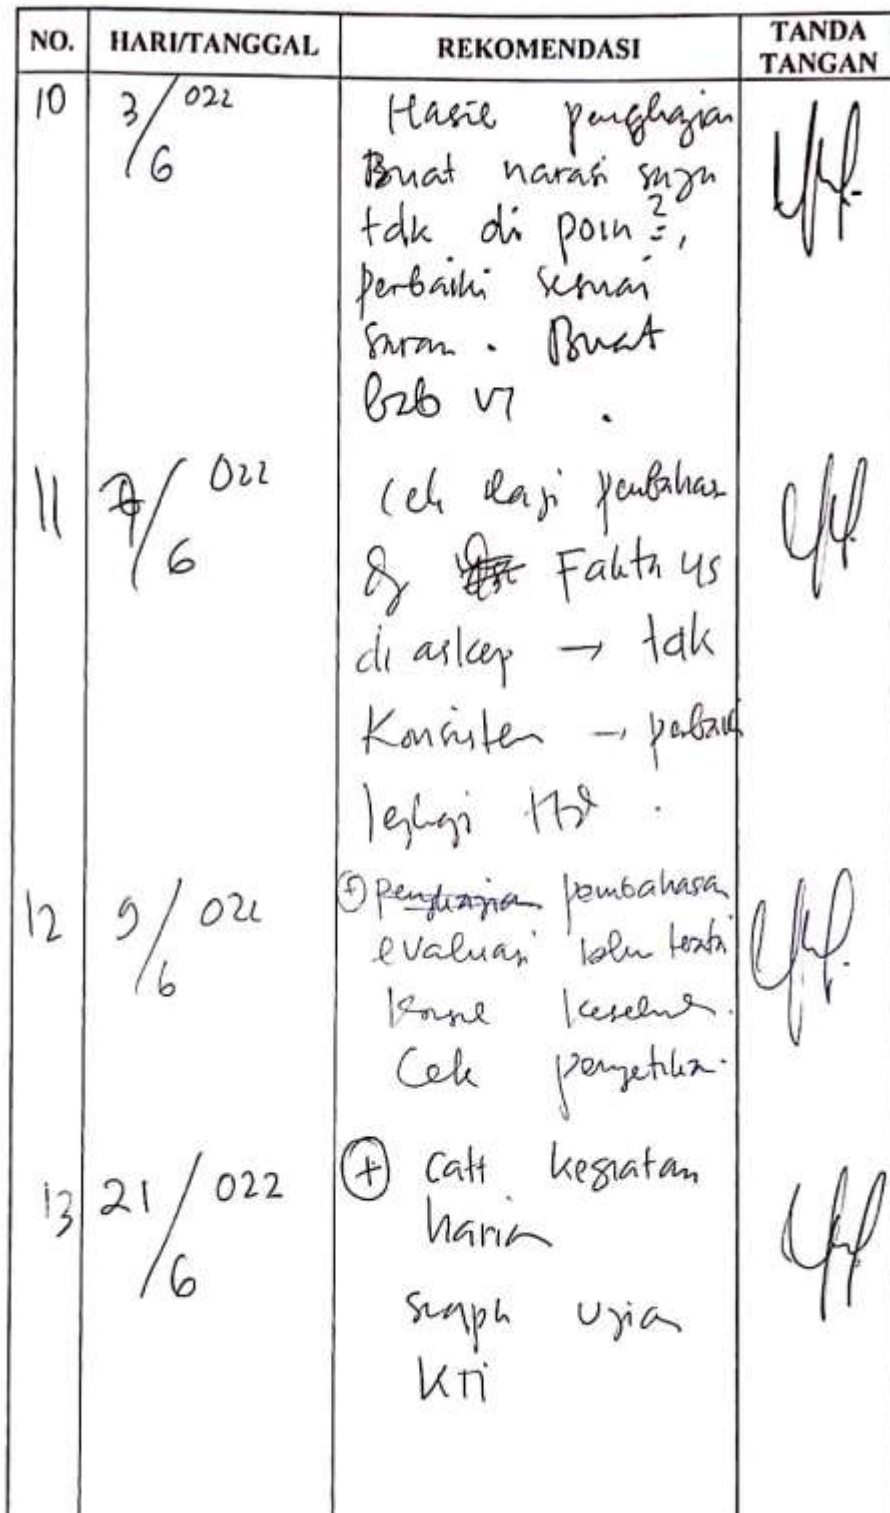 NO. HARI/TANGGAL REKOMENDASI TANDA TANGAN
10 3/6 022 Hasil pengkajian
Buat narasi saja
tdk di poin2,
perbaiki sesuai
saran. Buat
bab VI.
11 7/6 022 Cek lagi pembahas
dg Fakta yg
di askep → tdk
Konsisten →
lengkapi
12 9/6 022 + pengkajian pembahasan
evaluasi
Konsul
Cek pengetikan.
13 21/6 022 + Catt kegiatan
harian
Ujian
KTI